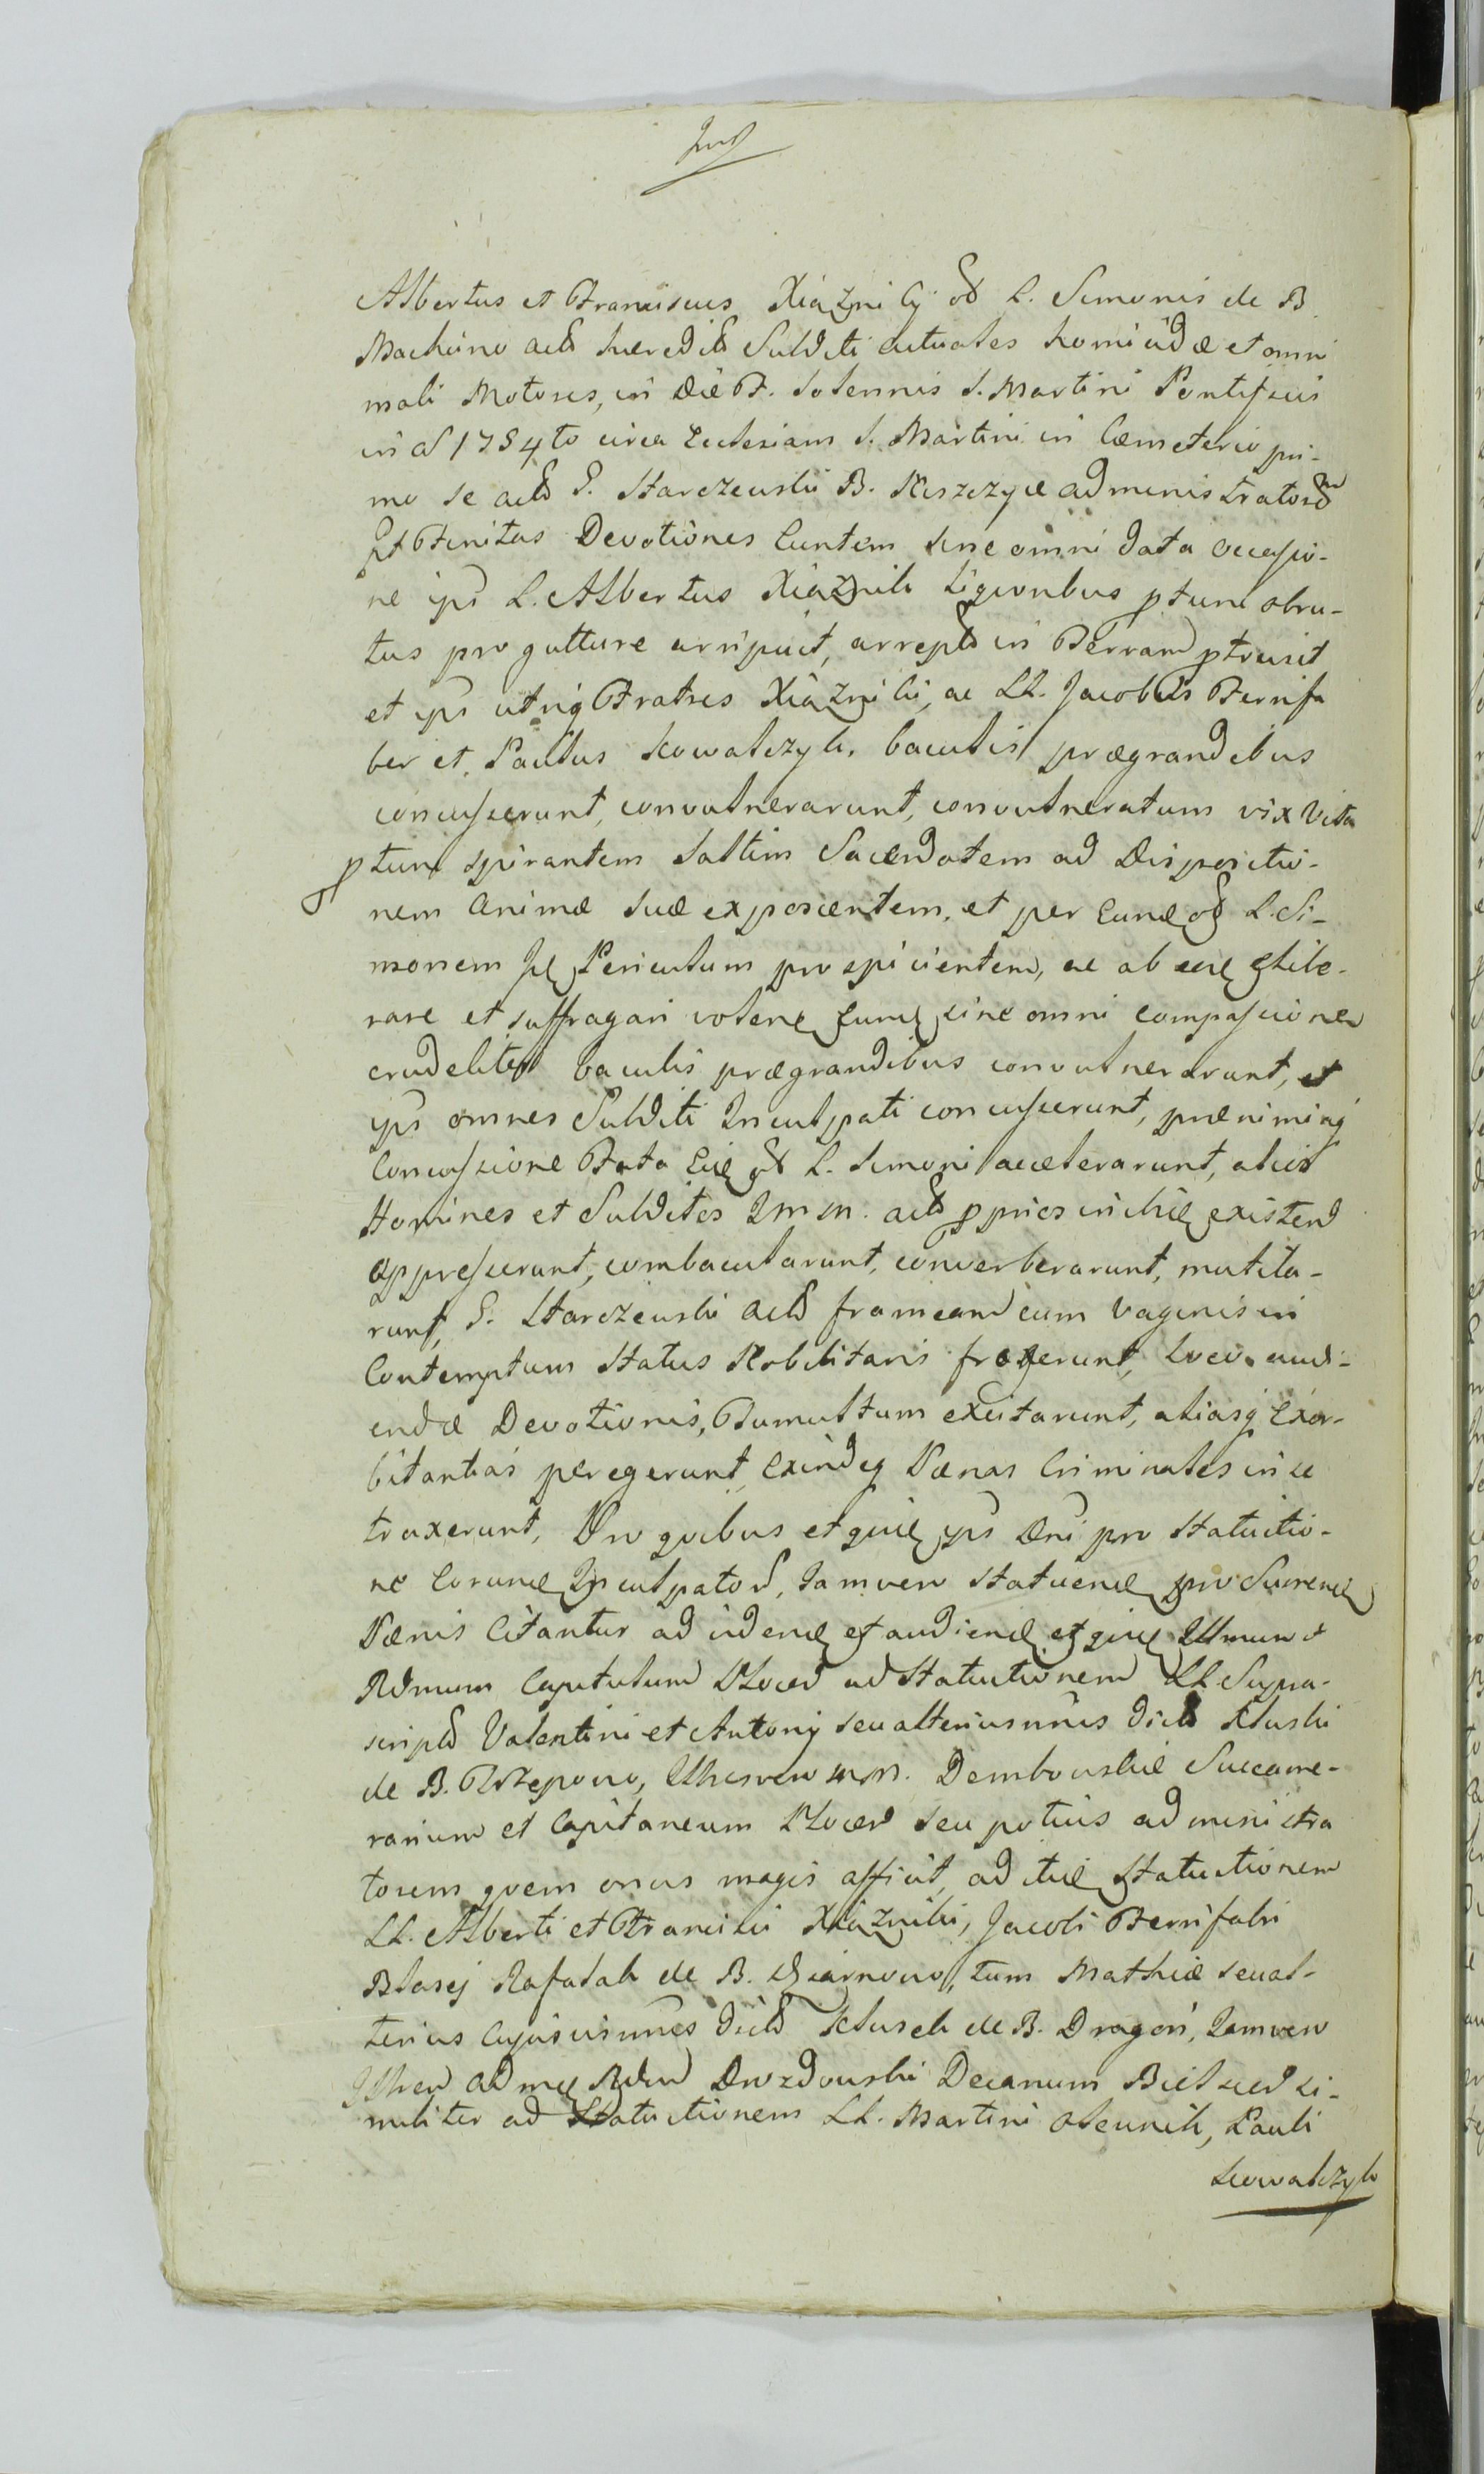 Albertus et Franciscus Xiązniky od L. Simonis de B.
Machcino actd hæredit Subditi actuales homicidæ et omni
mali Motores, in die F. Solennis S. Martini Pontificis
in ao 1784to circa Ecclesiam S. Martini in Cæmeterio pri-
mo se actd G. Starczewski B. Kiszczyce administratord
post Finitas Devotiones Euntem sine omni data occasio-
ne ips L. Albertus Xiąznik liquoribus ptum obru-
tus pro gutture arripuit, arreptd in Terram ptrusit
et ips utriq Fratres Xiązniki, ac LL. Jacobus Ferrifa
ber et Paulus Kowalczyk, baculis prægrandibus
concusserunt, convulnerarunt, convulneratum vix vita
ptum spirantem saltim Sacerdotem ad Dispositio-
nem Animæ suæ exposcentem, et per eund od L. Si-
monem Periculum prospicientem, ac ab libe-
rare et suffragari volend eund sine omni compassione
crudeliter baculis prægrandibus convulnerarunt, et
ips omnes Subditi Inculpati concusserunt, prænimiaq
Concussione Fata od L. Simoni accelerarunt, alios
Homines et Subditos Imm. actd pprios inibi existend
oppresserunt, combacularunt, converberarunt, mutila-
runt, G. Starczewski actd frameam cum vaginis in
Contemptum Status Nobilitaris fregerunt, loco audi-
endæ Devotionis, Tumultum excitarunt, aliasq Exor-
bitantias peregerunt, exindeq Pænas Criminales in se
traxerunt, Pro quibus et ips Dni pro Statuitio-
ne Eorund Inculpatord, Jamvero Statuend pro Luend
Pænis Citantur ad vidend et audiend Illmum et
Rdmum Capitulum Plocen ad Statuitionem LL Supra-
scriptd Valentini et Antonij seu alterius dictd Kluski
de B. Rzepowo, M. Dembowski Succame-
rarium et Capitaneum Plocen seu potius administra
torem quem onus magis afficit, ad Statuitionem
LL. Alberti et Francisci Xiązniki, Jacobi Ferrifabri
Blasij Rafalak de B. tum Mathiæ seu al-
terius dictd Klusek de B. Jamvero
Drozdowski Decanum si-
militer ad Statuitionem LL. Martini Olewnik, Pauli
Kowalczyk